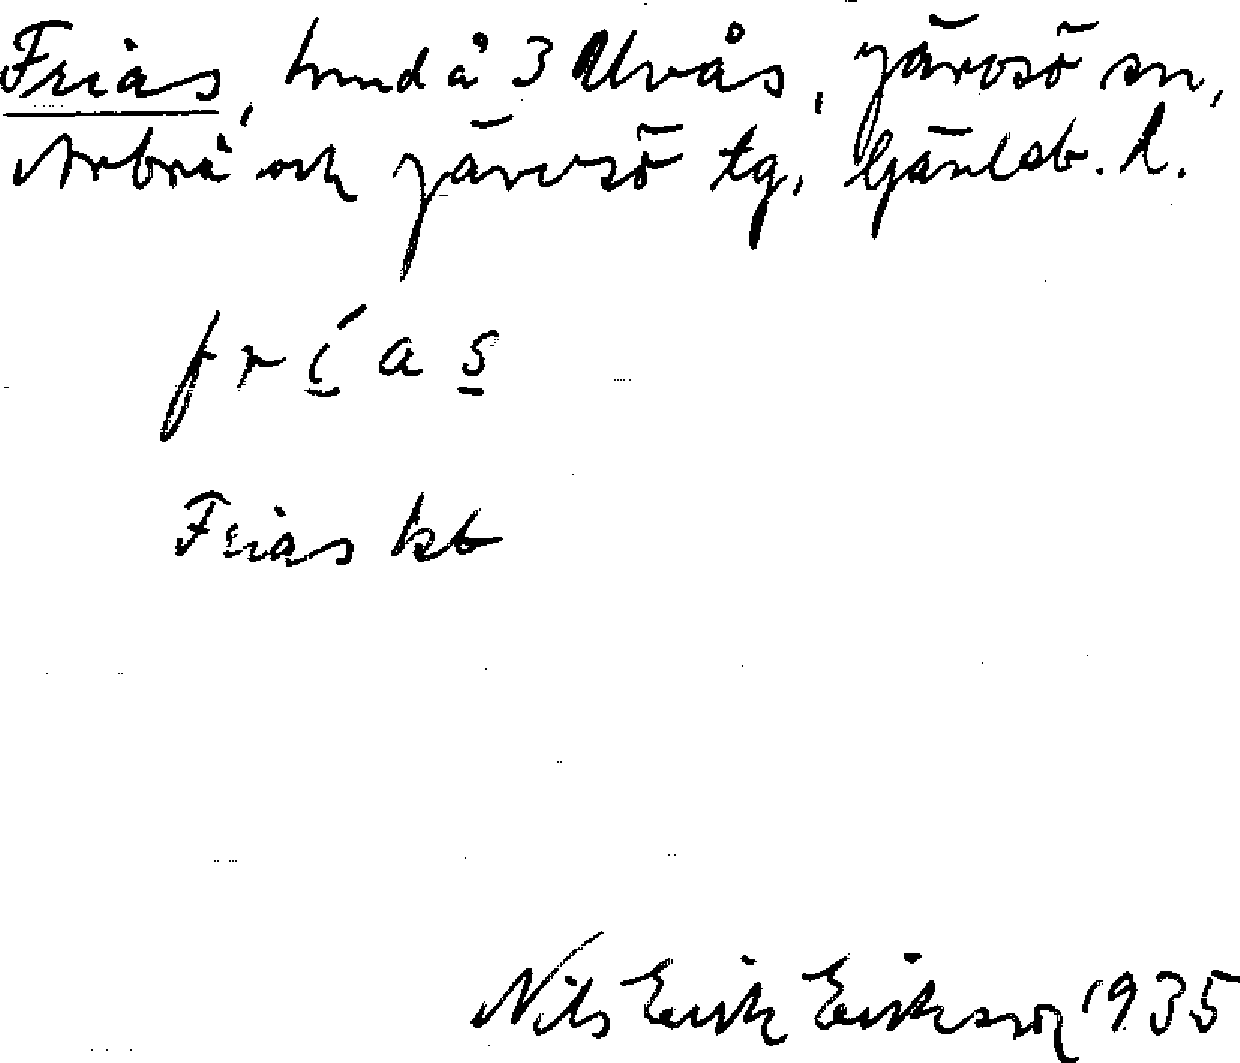 Frias, hmd å 3 Ulvås, Järvsö sn,
Arbrå och Järvsö tg, Gävleb. l.
frías
Frias kb
Nils Erik Eriksson 1935